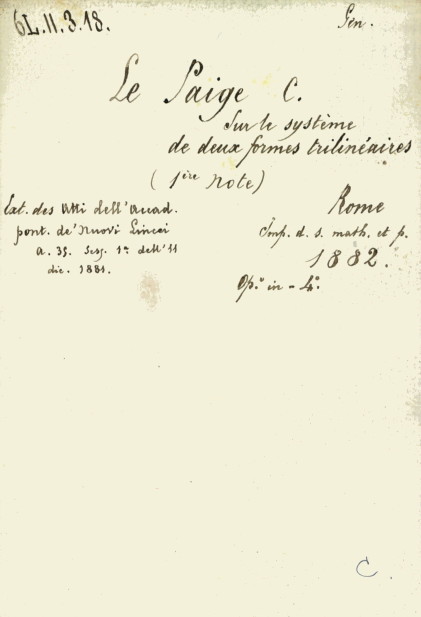 6L.II.3.18.
Gen.
Le Paige C.
Sur le système
de deux formes trilinéaires
(1ère Note)
Ext. des Atti dell'Acad.
pont. de' Nuovi Lincei
a. 35. Sess. 1a dell' 11
dic. 1881.
Rome
Imp. d. s. math. et p.
1882.
Op.o in-4.o
C.